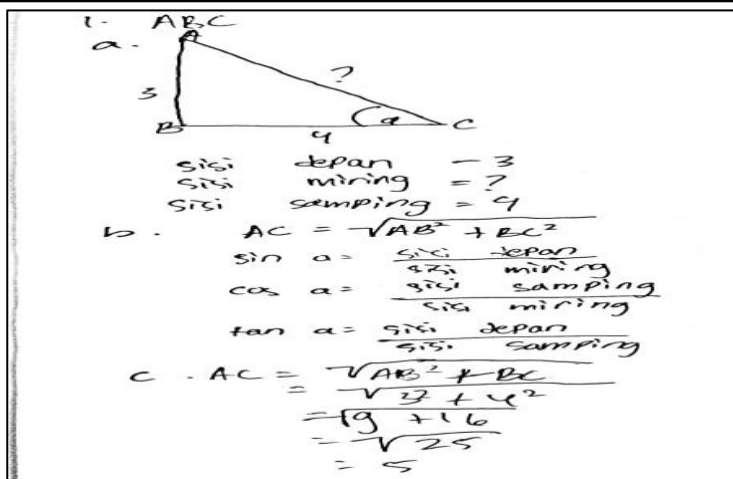 1. ABC
a.
A
?
3
a
B
4
C
sisi depan - 3
sisi miring = ?
sisi samping = 4
b. AC = √AB² + BC²
sin a = sisi depan
sisi miring
cos a = sisi samping
sisi miring
tan a = sisi depan
sisi samping
c. AC = √AB² + BC
= √3² + 4²
= √9 + 16
= √25
= 5